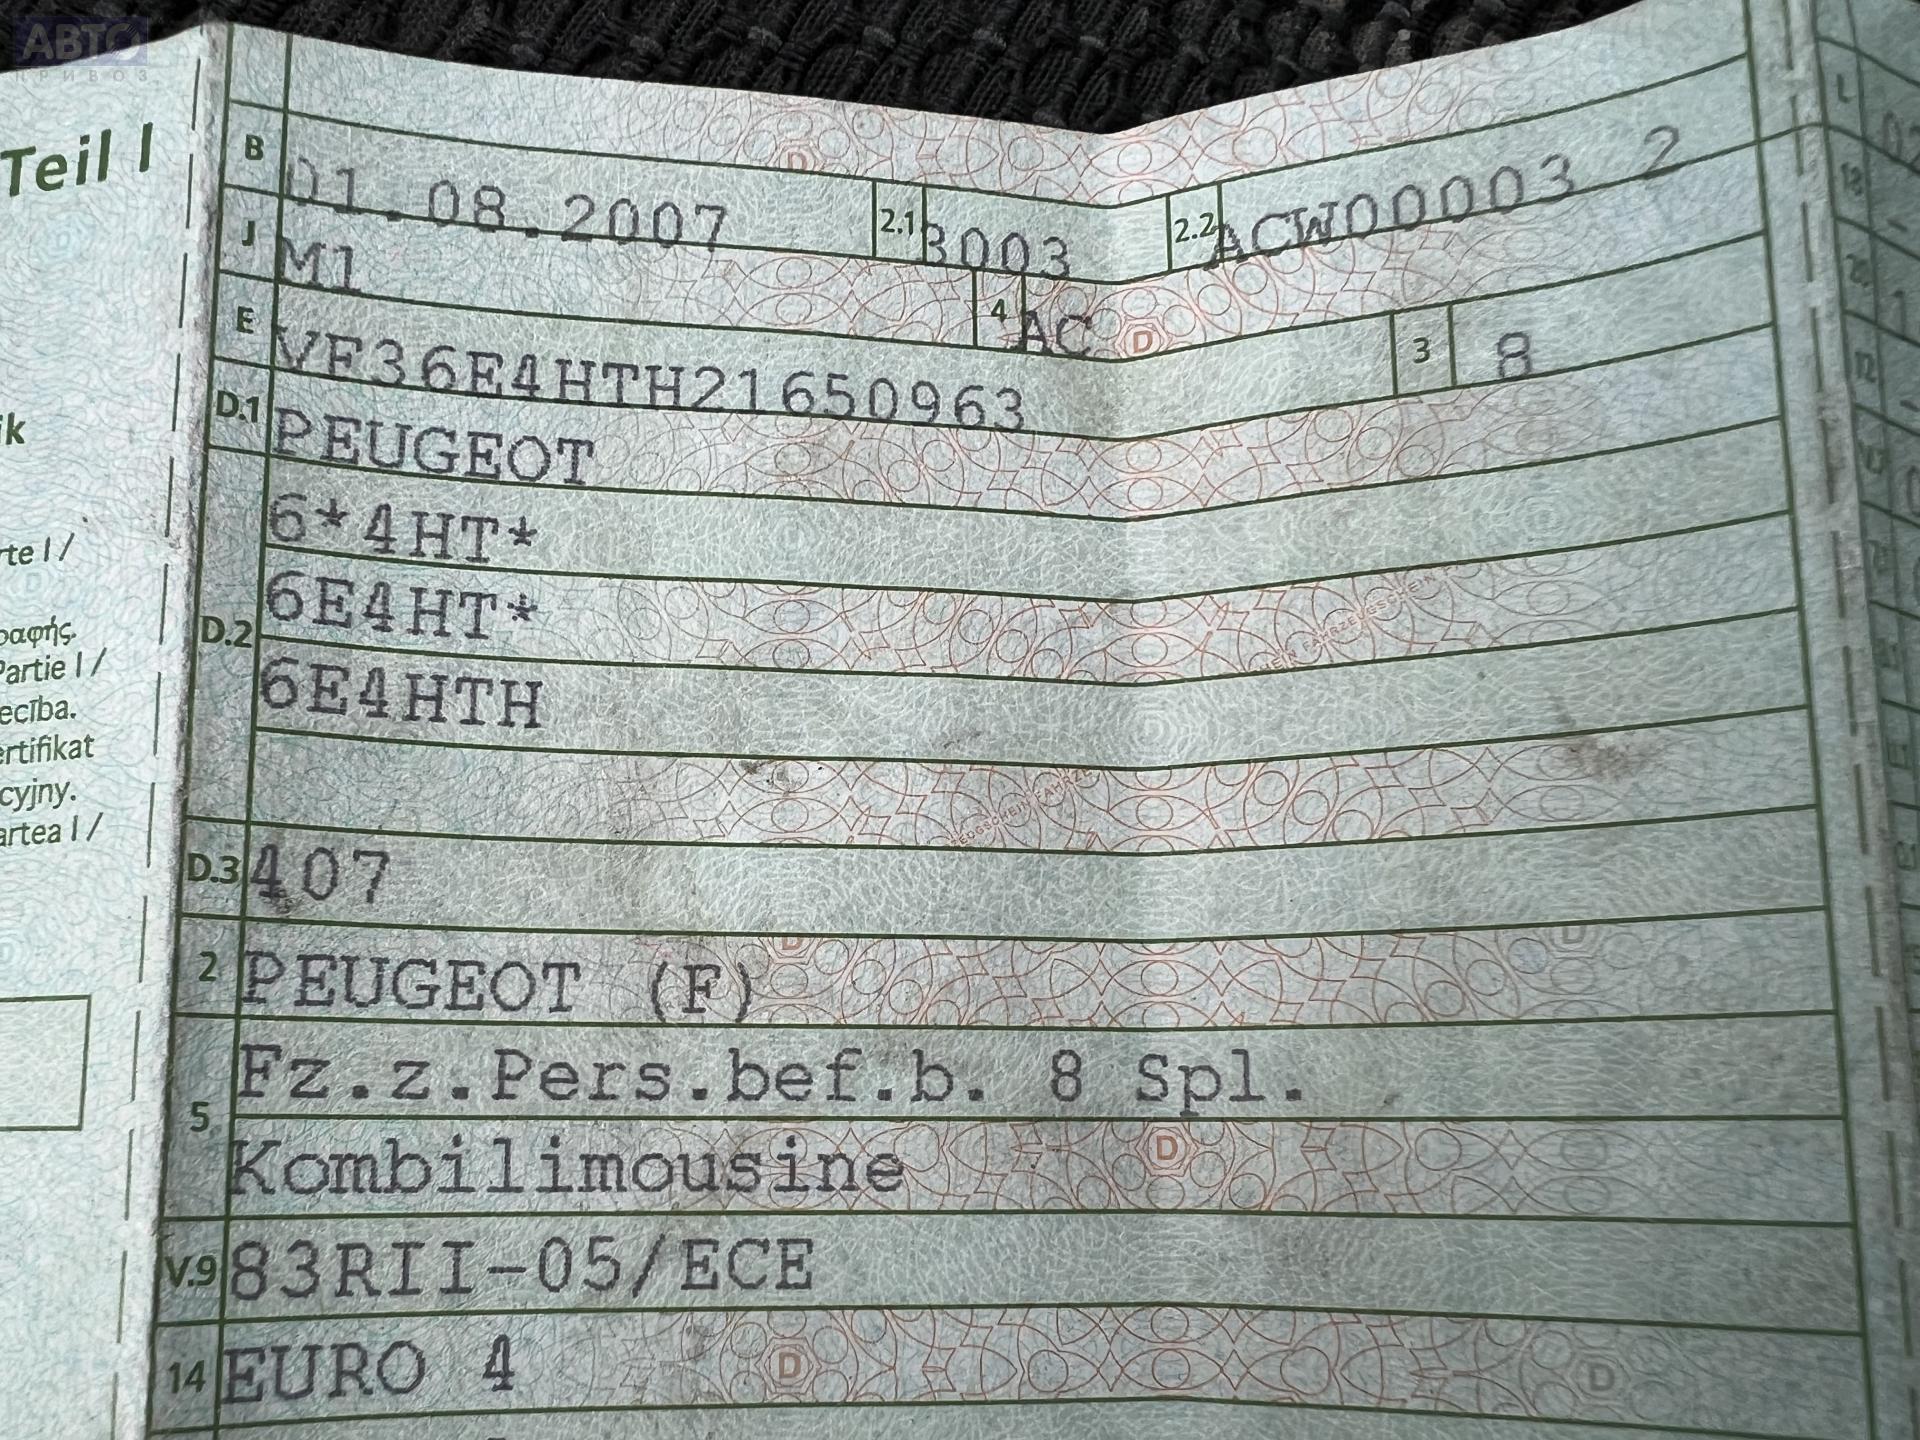 АВТО
ПРИВОЗ
Teil I
B 01.08.2007 2.1 3003 2.2 ACW00003 2
J M1 4 AC
E VF36E4HTH21650963 3 8
D.1 PEUGEOT
6*4HT*
6E4HT*
D.2
6E4HTH
D.3 407
2 PEUGEOT (F)
Fz.z.Pers.bef.b. 8 Spl.
5
Kombilimousine
V.9 83RII-05/ECE
14 EURO 4
ik
rte I /
ραφής.
Partie I /
ecība.
ertifikat
cyjny.
artea I /
L
18
20
12